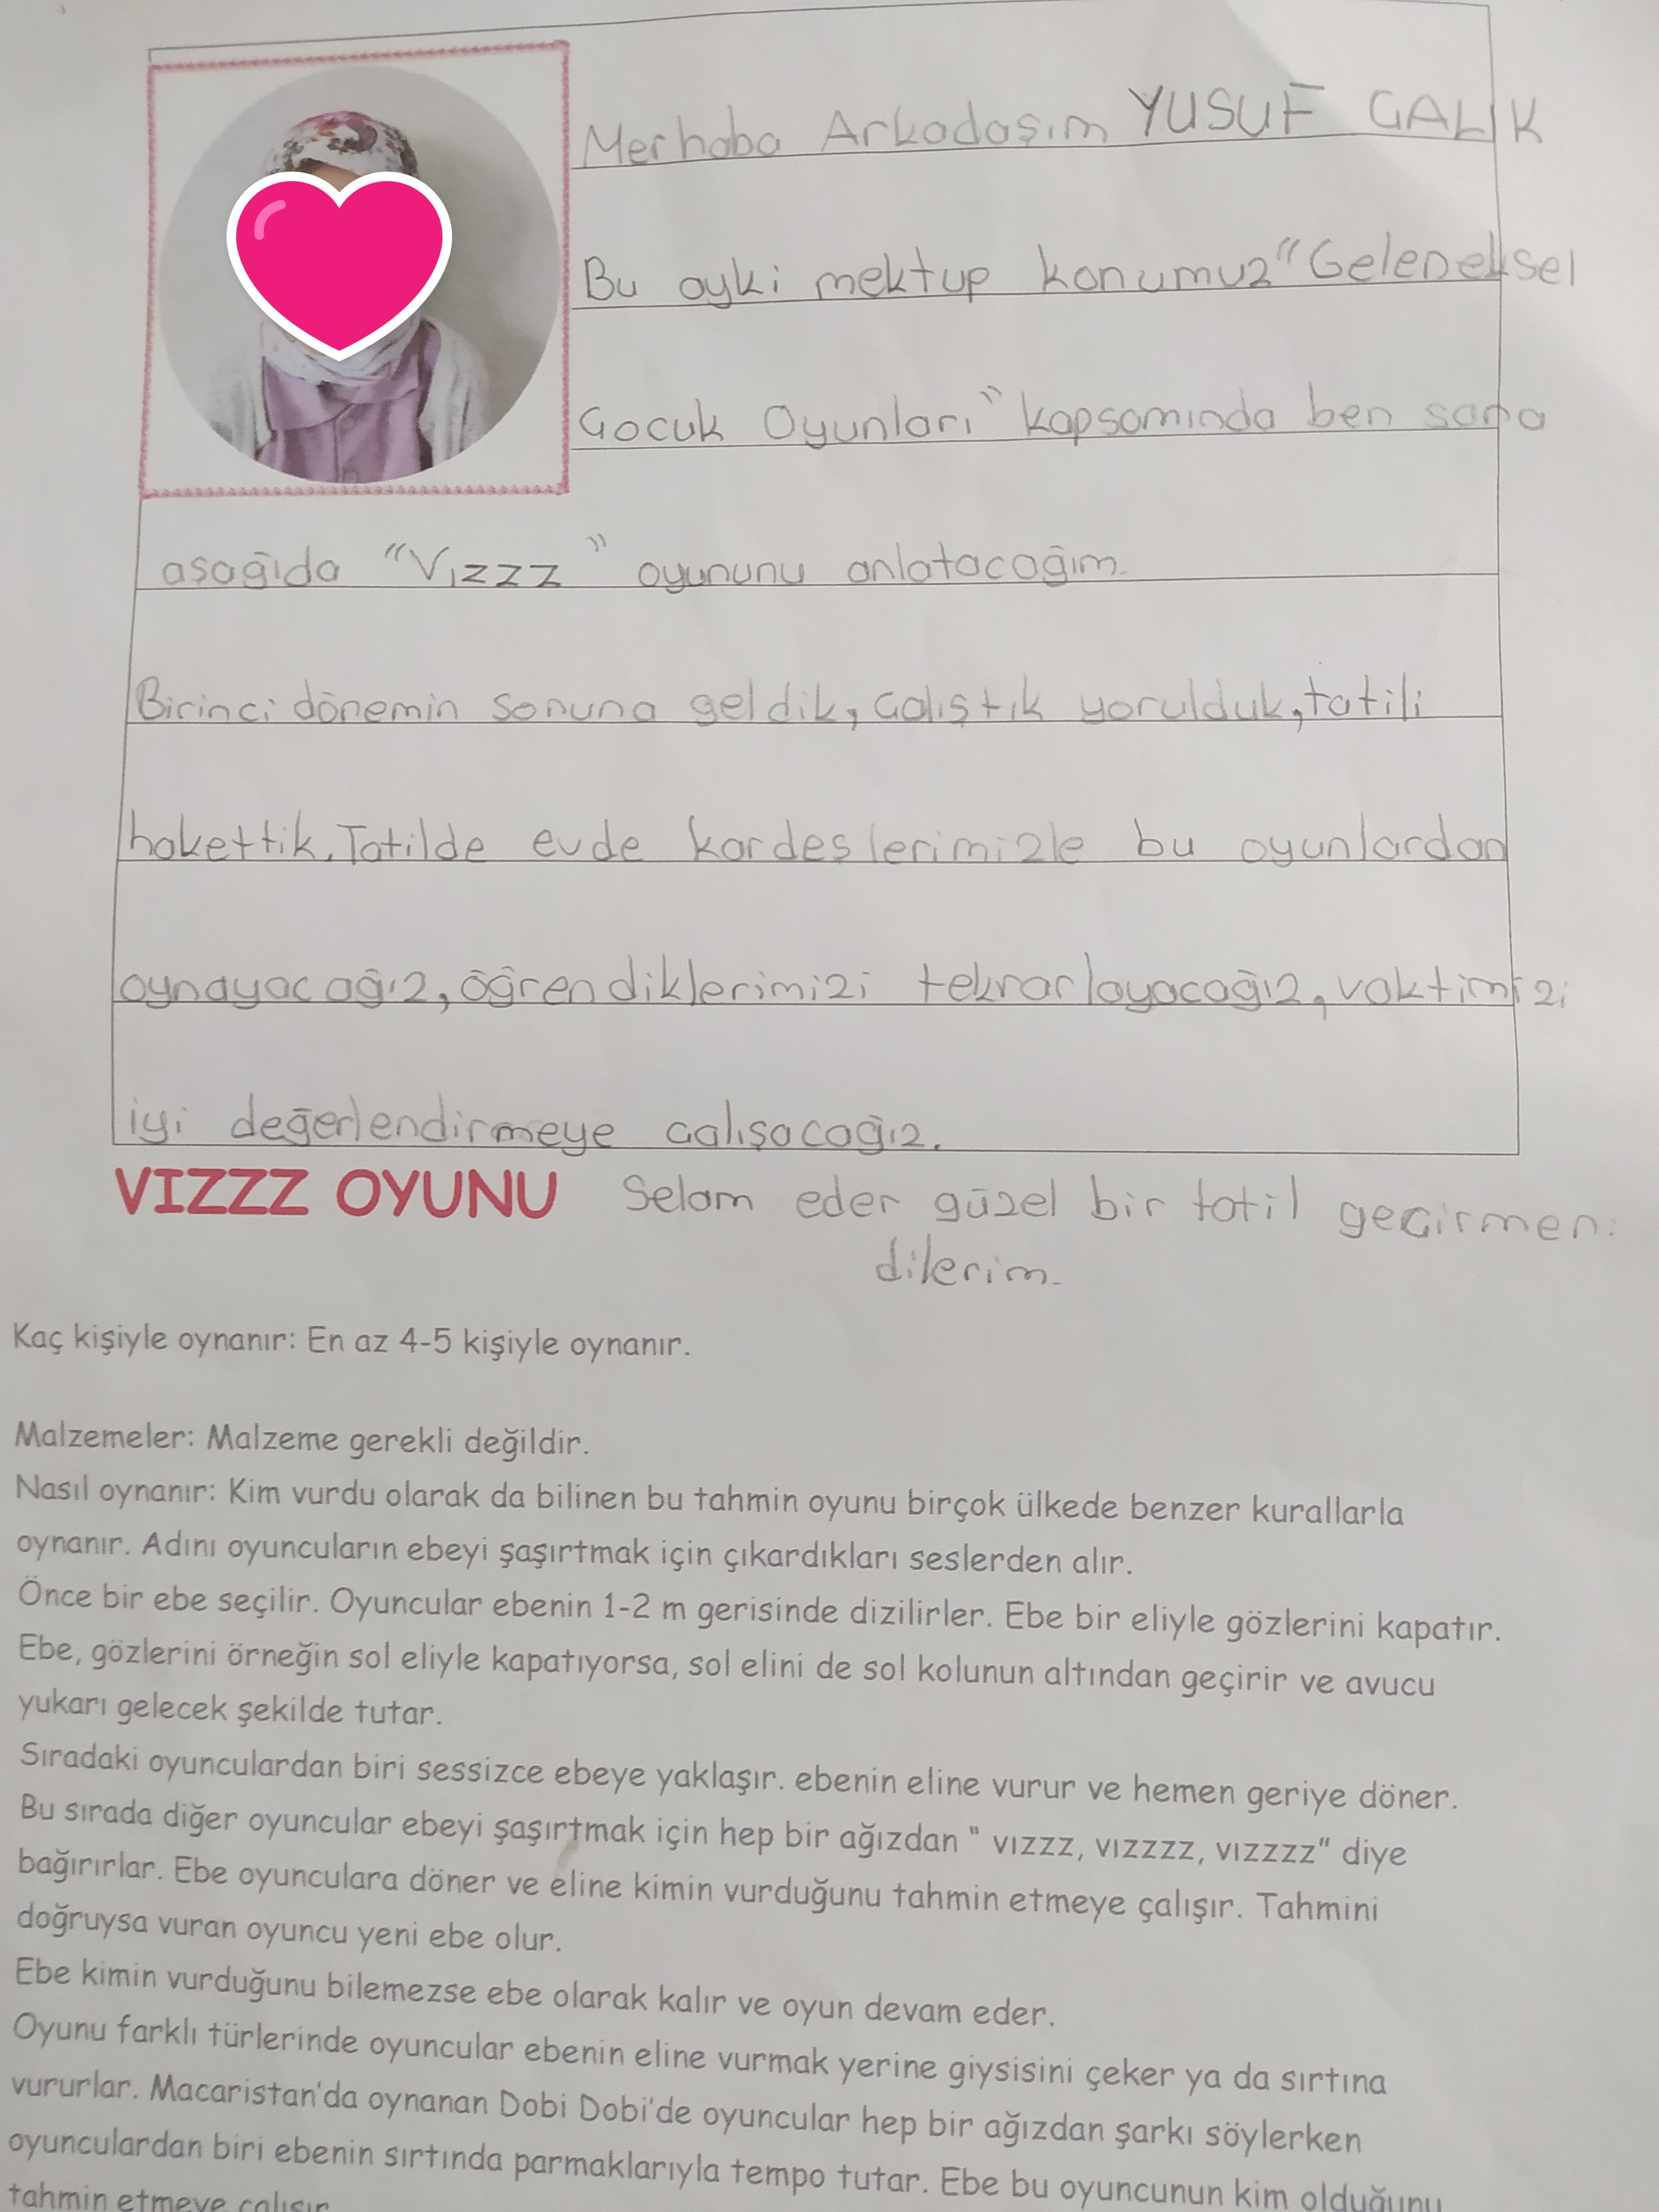 Merhaba Arkadaşım YUSUF ÇALIK
Bu ayki mektup konumuz "Geleneksel
Çocuk Oyunları" kapsamında ben sana
aşağıda "Vızzz" oyununu anlatacağım.
Birinci dönemin sonuna geldik, çalıştık yorulduk, tatili
hakettik. Tatilde evde kardeşlerimizle bu oyunlardan
oynayacağız, öğrendiklerimizi tekrarlayacağız, vaktimizi
iyi değerlendirmeye çalışacağız.
VIZZZ OYUNU Selam eder güzel bir tatil geçirmeni
dilerim.
Kaç kişiyle oynanır: En az 4-5 kişiyle oynanır.
Malzemeler: Malzeme gerekli değildir.
Nasıl oynanır: Kim vurdu olarak da bilinen bu tahmin oyunu birçok ülkede benzer kurallarla
oynanır. Adını oyuncuların ebeyi şaşırtmak için çıkardıkları seslerden alır.
Önce bir ebe seçilir. Oyuncular ebenin 1-2 m gerisinde dizilirler. Ebe bir eliyle gözlerini kapatır.
Ebe, gözlerini örneğin sol eliyle kapatıyorsa, sol elini de sol kolunun altından geçirir ve avucu
yukarı gelecek şekilde tutar.
Sıradaki oyunculardan biri sessizce ebeye yaklaşır. ebenin eline vurur ve hemen geriye döner.
Bu sırada diğer oyuncular ebeyi şaşırtmak için hep bir ağızdan " vızzz, vızzzz, vızzzz" diye
bağırırlar. Ebe oyunculara döner ve eline kimin vurduğunu tahmin etmeye çalışır. Tahmini
doğruysa vuran oyuncu yeni ebe olur.
Ebe kimin vurduğunu bilemezse ebe olarak kalır ve oyun devam eder.
Oyunu farklı türlerinde oyuncular ebenin eline vurmak yerine giysisini çeker ya da sırtına
vururlar. Macaristan'da oynanan Dobi Dobi'de oyuncular hep bir ağızdan şarkı söylerken
oyunculardan biri ebenin sırtında parmaklarıyla tempo tutar. Ebe bu oyuncunun kim olduğunu
tahmin etmeye çalışır.